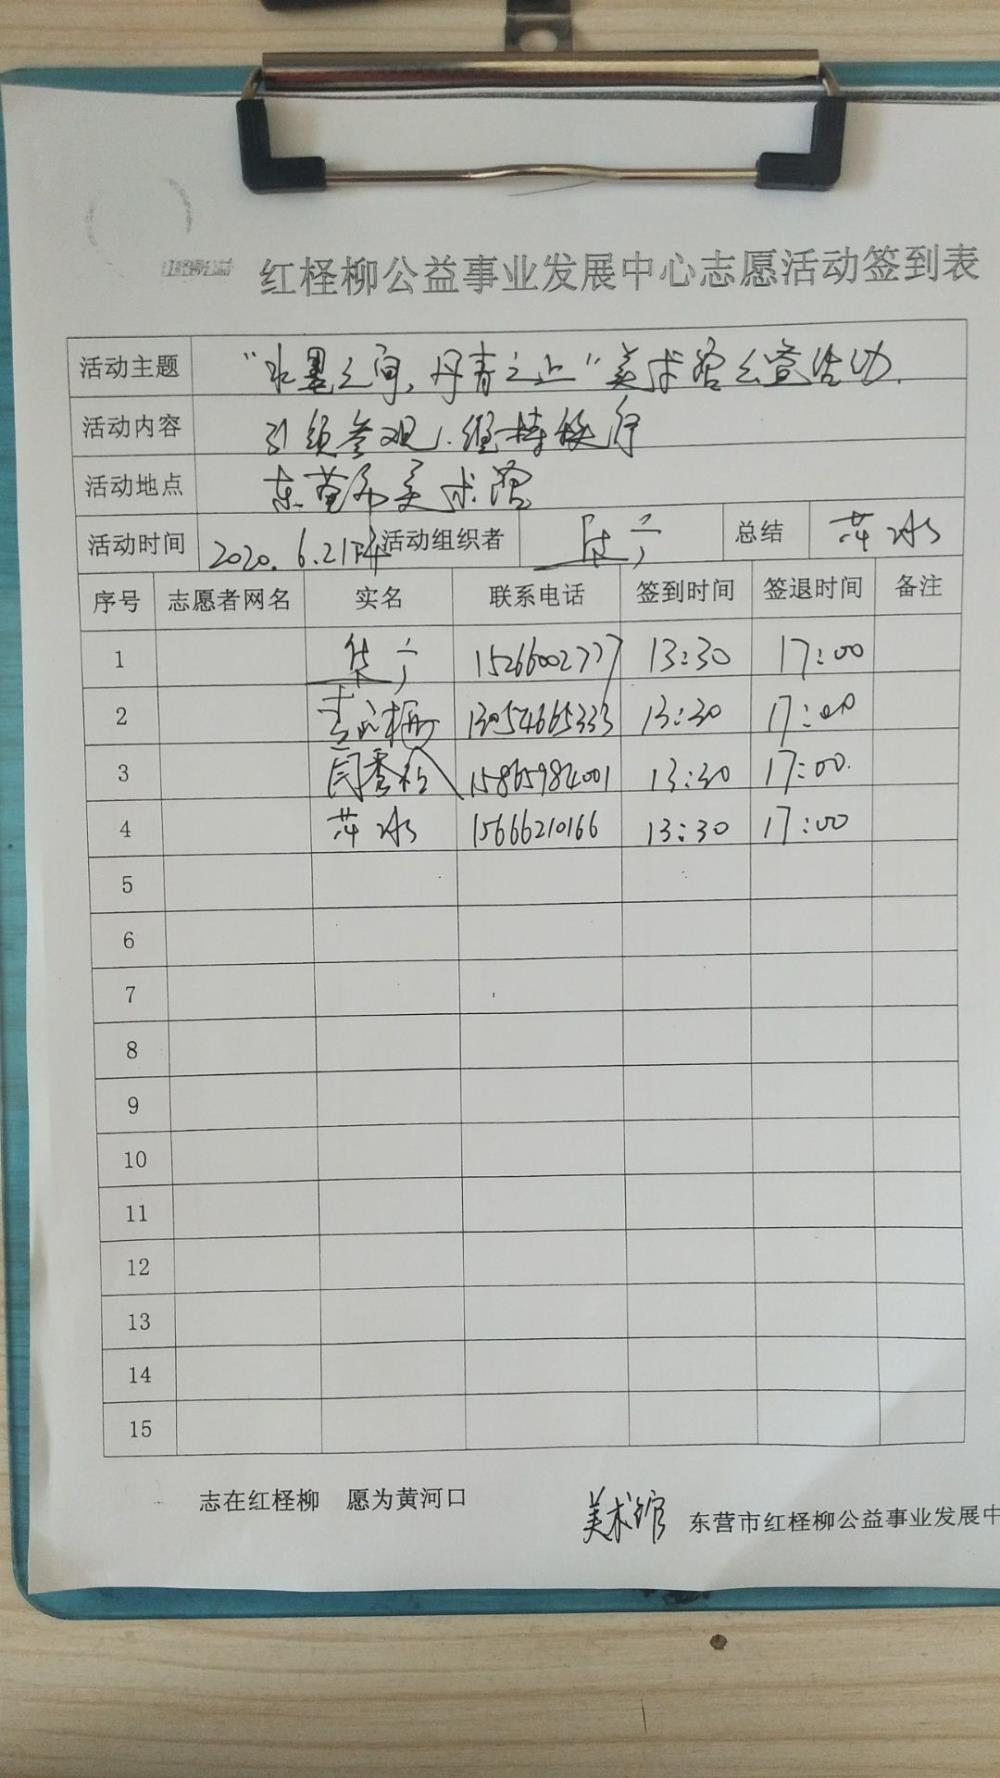 红柽柳公益
红柽柳公益事业发展中心志愿活动签到表
活动主题 “水墨之间,丹青之上”美术馆公宣活动.
活动内容 引领参观、维持秩序
活动地点 东营市美术馆
活动时间 2020.6.21下午 活动组织者 总结 萍水
序号 志愿者网名 实名 联系电话 签到时间 签退时间 备注
1 15266002777 13:30 17:00
2 13054665333 13:30 17:00
3 闫秀 15865984001 13:30 17:00.
4 萍水 15666210166 13:30 17:00
5
6
7
8
9
10
11
12
13
14
15
志在红柽柳 愿为黄河口
美术馆 东营市红柽柳公益事业发展中